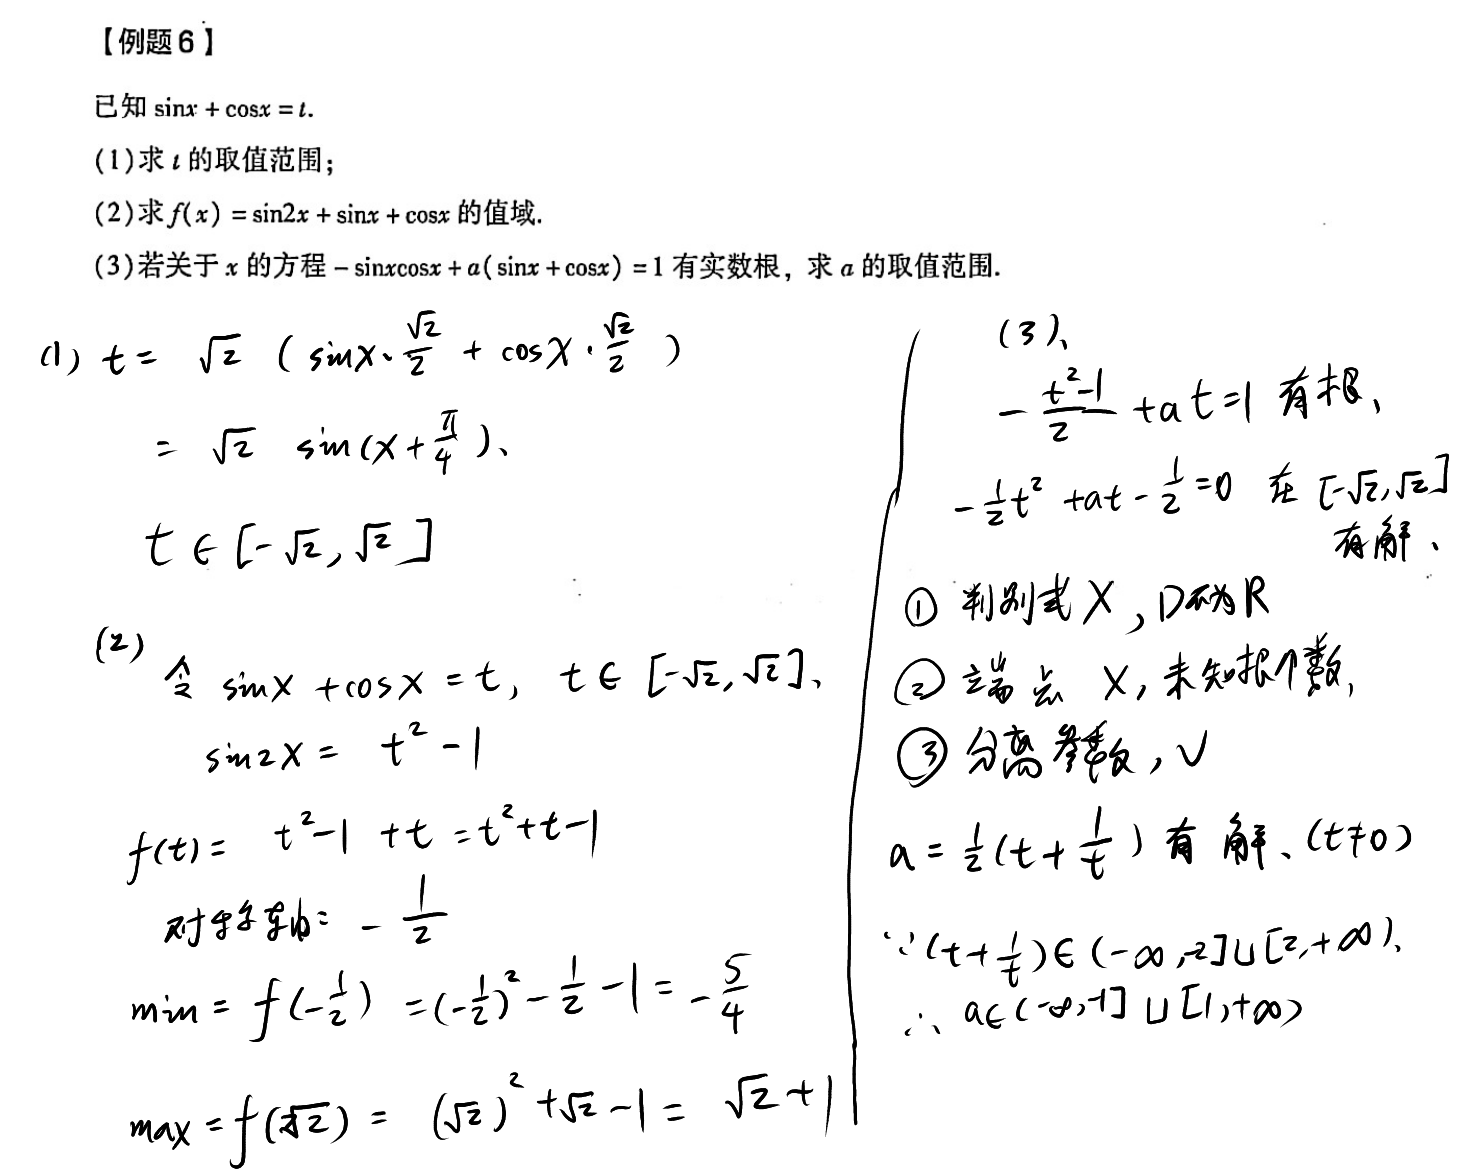 【例题6】
已知 sinx + cosx = t.
(1)求 t 的取值范围；
(2)求 f(x) = sin2x + sinx + cosx 的值域.
(3)若关于 x 的方程 - sinxcosx + a(sinx + cosx) = 1 有实数根，求 a 的取值范围.
(1) t = √2 (sinx·√2/2 + cosx·√2/2)
= √2 sin(x+π/4)、
t ∈ [-√2, √2]
(2)
令 sinx + cosx = t, t ∈ [-√2, √2]、
sin2x = t² - 1
f(t) = t² - 1 + t = t² + t - 1
对称轴: - 1/2
min = f(-1/2) = (-1/2)² - 1/2 - 1 = - 5/4
max = f(√2) = (√2)² + √2 - 1 = √2 + 1
(3)、
- (t²-1)/2 + at = 1 有根、
- 1/2 t² + at - 1/2 = 0 在 [-√2, √2]
有解、
① 判别式 X, D不为R
② 端点 X, 未知根个数,
③ 分离参数, √
a = 1/2 (t + 1/t) 有解、(t≠0)
∵ (t + 1/t) ∈ (-∞, -2] ∪ [2, +∞)、
∴ a∈(-∞, -1] ∪ [1, +∞)